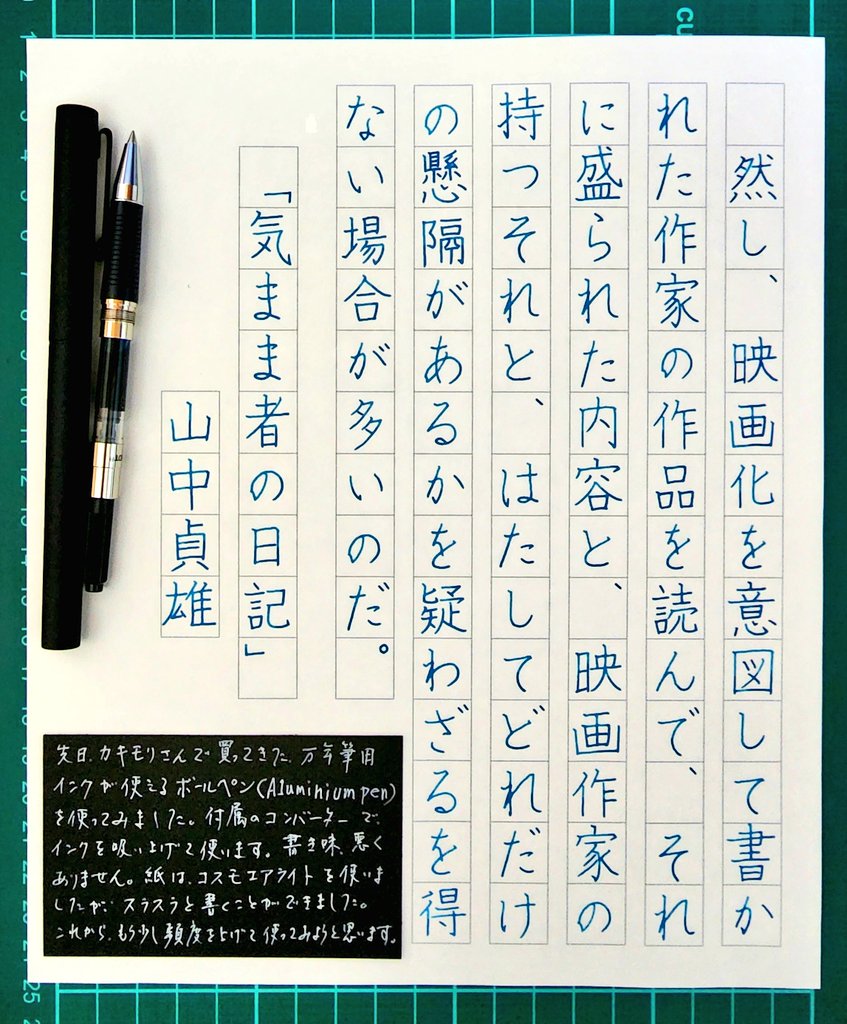 然し、映画化を意図して書か
れた作家の作品を読んで、それ
に盛られた内容と、映画作家の
持つそれと、はたしてどれだけ
の懸隔があるかを疑わざるを得
ない場合が多いのだ。
「気まま者の日記」
山中貞雄
先日、カキモリさんで買ってきた、万年筆用
インクが使えるボールペン(Aluminium pen)
を使ってみました。付属のコンバーターで、
インクを吸い上げて使います。書き味、悪く
ありません。紙は、コスモエアライトを使いま
したが、スラスラと書くことができました。
これから、もう少し頻度を上げて使ってみようと思います。